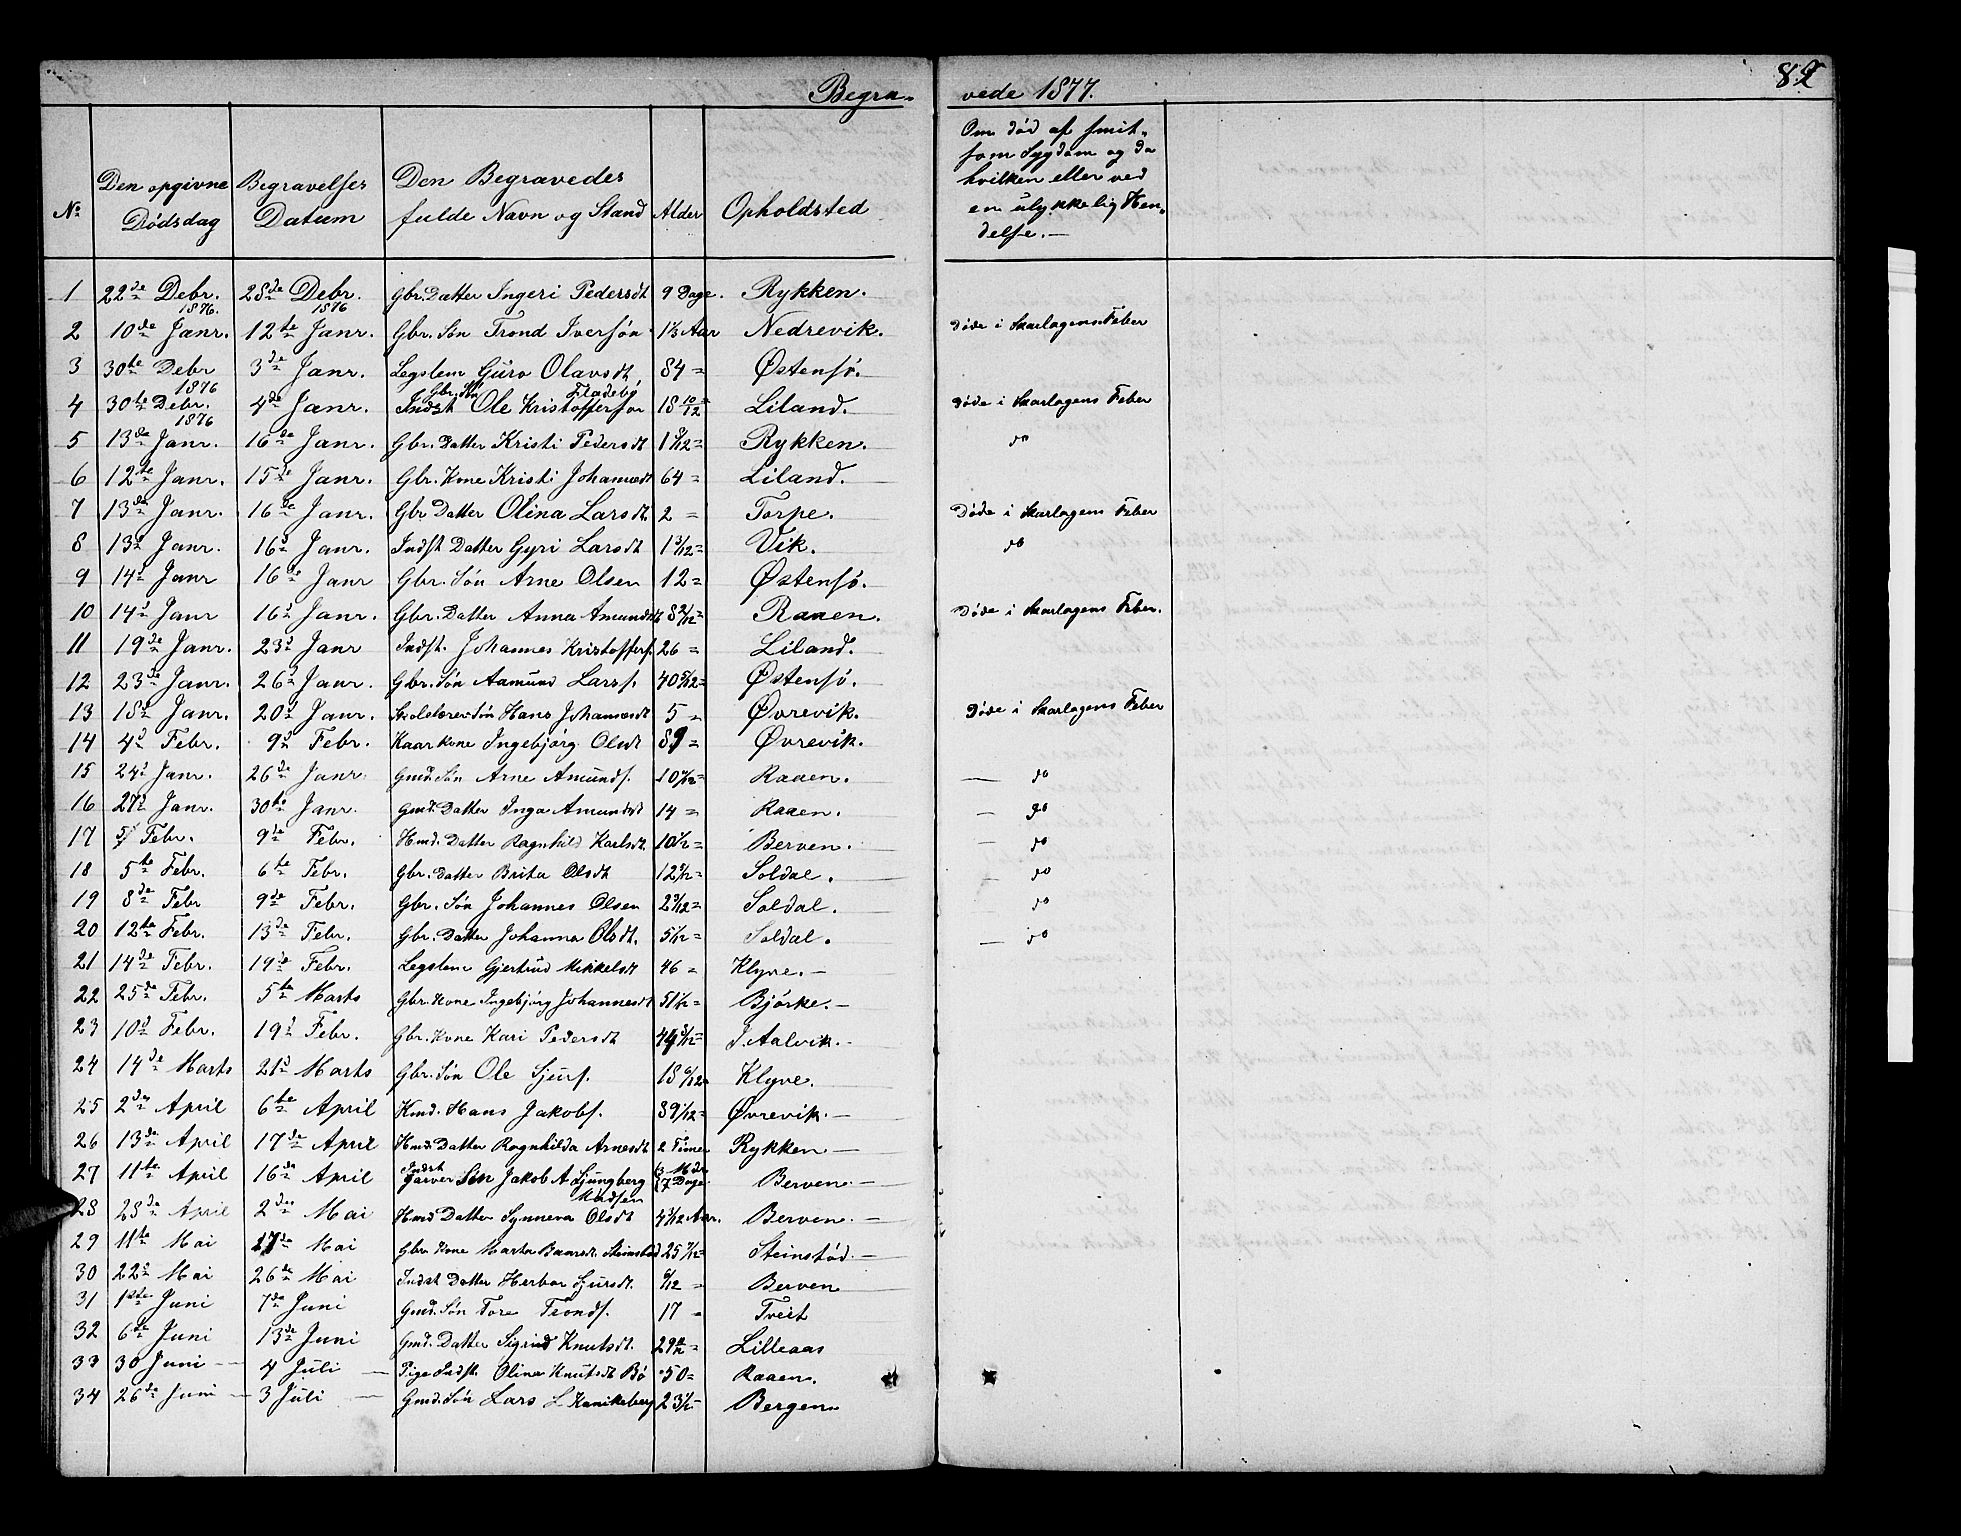 Begra- vede 1877. 82
No Den opgivne Dødsdag Begravelses Datum Den Begravedes fulde Navn og Stand Alder Opholdsted Om død af smit- som Sygdom og da hvilken eller ved en ulykkelig Hen- delse.—
1 22de Debr. 1876. 28de Debr. 1876 Gbr. Datter Ingeri Pedersdt 9 Dage. Rykken.
2 10de Janr. 12te Janr. Gbr. Søn Trond Iversøn 1 1/3 Aar Nedrevik. Døde i Skarlagens Feber
3 30te Debr 1876 3de Janr. Legslem Guro Olavsdt 84 = Østensø.
4 30te Debr. 1876 4de Janr. Gbr. Søn Indst Ole Kristoffersen Fladebø 18 10/12 Liland. Døde i Skarlagens Feber
5 13de Janr. 16de Janr. Gbr. Datter Kristi Pedersdt 1 8/12 = Rykken. do
6 12te Janr. 15de Janr. Gbr. Kone Kristi Johannesdt 64 = Liland.
7 13de Janr. 16de Janr. Gbr Datter Olina Larsdt. 2 = Torpe. Døde i Skarlagens Feber
8 13d Janr. 16d Janr. Indst Datter Gyri Larsdt 1 3/12 = Vik. do
9 14d Janr 16d Janr Gbr. Søn Arne Olsen 12 = Østensø.
10 14d Janr 16d Janr. Gbr. Datter Anna Amundsdt 8 2/12 = Raaen. Døde i Skarlagens Feber.
11 19de Janr. 23d Janr Indst. Johannes Kristoffers. 26 = Liland.
12 23de Janr. 26d Janr. Gbr. Søn Aamund Larss. 40 5/12 = Østensø.
13 18d Janr. 20d Janr. Skolelærer Søn Hans Johannesdt 5 = Øvrevik. Døde i Skarlagens Feber
14 4d Febr. 9d Febr. Kaarkone Ingebjørg Olsdt 89 = Øvrevik.
15 24d Janr. 26de Janr. Gmd. Søn Arne Amunds. 10 Raaen. — do
16 27d Janr. 30te Janr. Gmd. Datter Inga Amundsdt 14 = Raaen. — do
17 5 Febr. 9de Febr. Hmd. Datter Ragnhild Karlsdt. 10 Berven. — do
18 5te Febr. 6te Febr. Gbr. Datter Brita Olsdt 12 Soldal. — do
19 8de Febr 9de Febr. Gbr. Søn Johannes Olsen 2 3/12 = Soldal. — do
20 12te Febr. 13de Febr. Gbr. Datter Johanna Olsdt. 5/12 = Soldal. — do
21 14de Febr. 19de Febr. Legslem Gjertrud Mikkelsdt 46 = Klyve.—
22 25de Febr. 5te Marts Gbr. Kone Ingebjørg Johannesdt 51 Bjørke.—
23 10d Febr. 19d Febr. Gbr. Kone Kari Pedersdt 44 I. Aalvik.—
24 14de Marts 21d Marts Gbr. Søn Ole Sjurs. 18 6/12 = Klyve.
25 2den April 6te April Kmd. Hans Jakobs. 89 1/12 = Øvrevik.—
26 13de April 17de April Hmd. Datter Ragnhilda Arnesdt 2 Timer Rykken—
27 11te April 16de April Indst Garver Søn Jakob A Ljungberg Madsen 3 Mdr 7 Dage Berven.—
28 28de April 2den Mai Hmd Datter Synneva Olsdt 4 3/12 Aar. Berven.—
29 11te Mai 17de Mai Gbr. Kone Marta Baardsdt. Steinstød 25 7/12 = Steinstød.—
30 22d Mai 26de Mai Indst Datter Herbor Sjursdt. 6/12 = Berven
31 1ste Juni 7de Juni Gmd. Søn Tore Tronds. 17 = Tveit
32 6te Juni 13de Juni Gmd. Datter Sigrid Knutsdt. 29 Lilleaas
33 30 Juni — 4 Juli — Pige Indst. Olina Knutsdt Bø 50 = Raaen.
34 26de Juni — 3 Juli — Gmd. Søn Lars L Kanikeberg 23 Bergen.